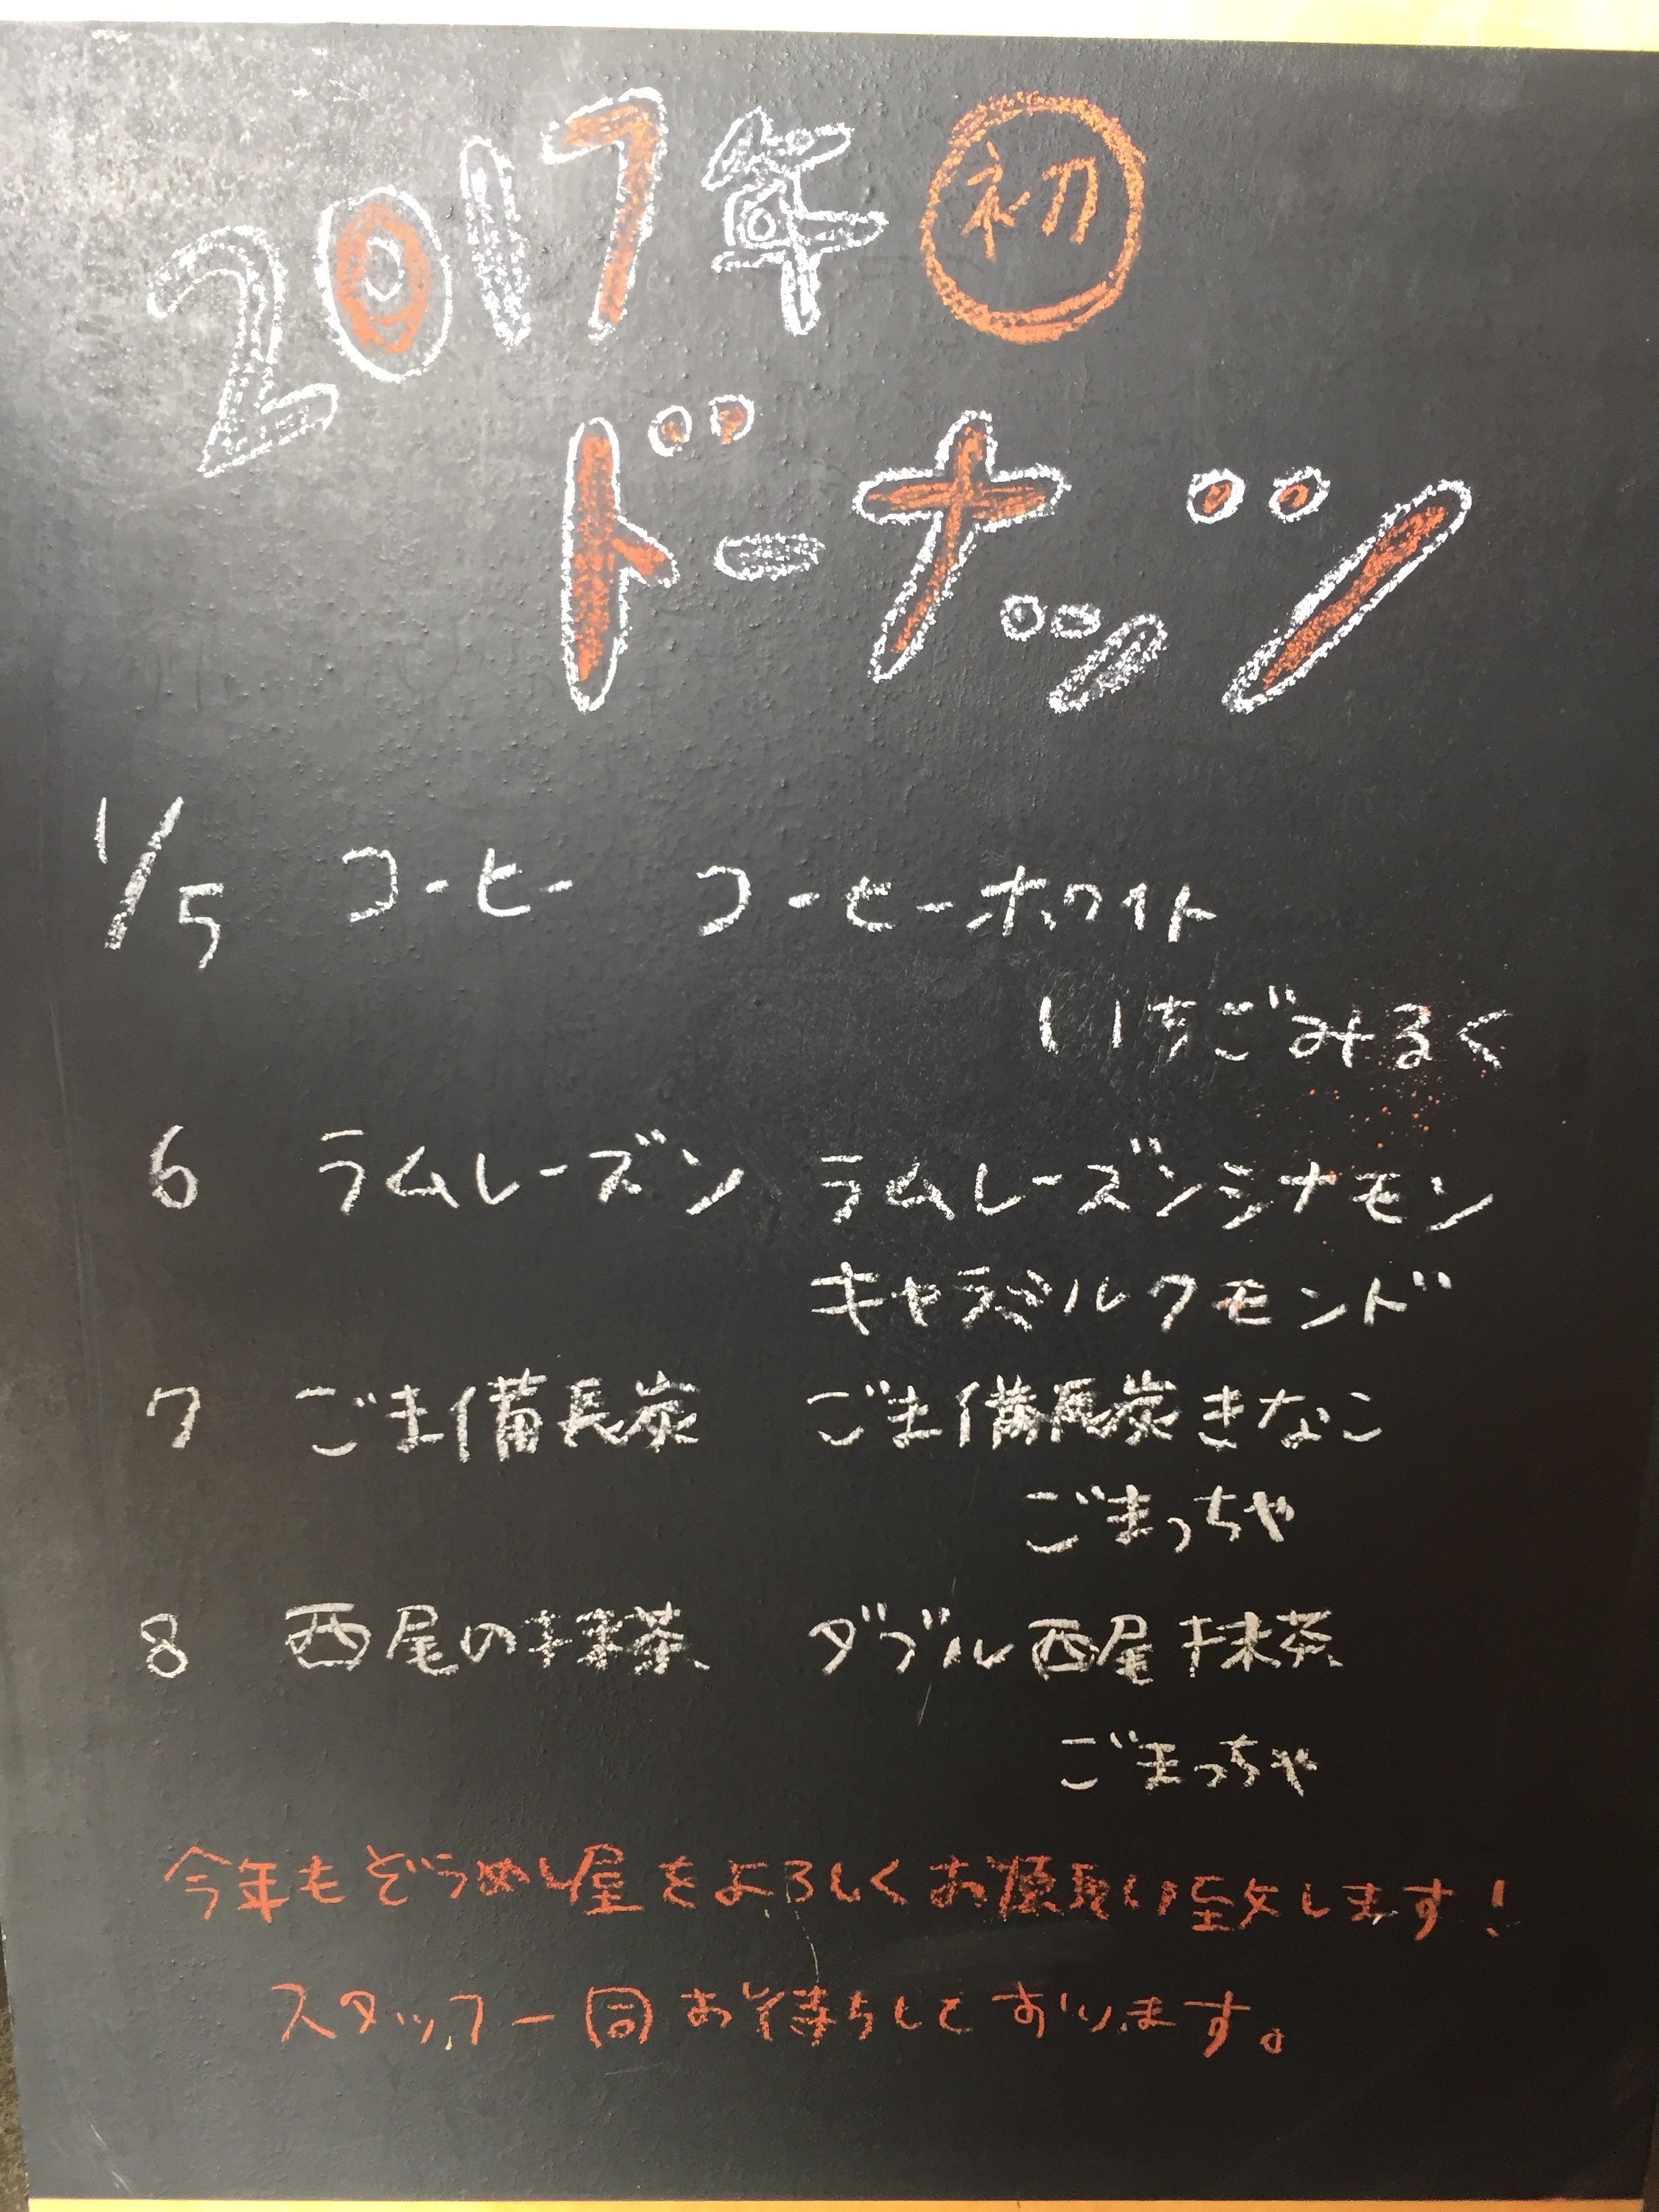 2017年 初
ドーナッツ
1/5 コーヒー コーヒーホワイト
いちごみるく
6 ラムレーズン ラムレーズンシナモン
キャラメルアモンド
7 ごま備長炭 ごま備長炭きなこ
ごまっちゃ
8 西尾の抹茶 ダブル西尾抹茶
ごまっちゃ
今年もぞうめし屋をよろしくお願い致します!
スタッフ一同お待ちしております。